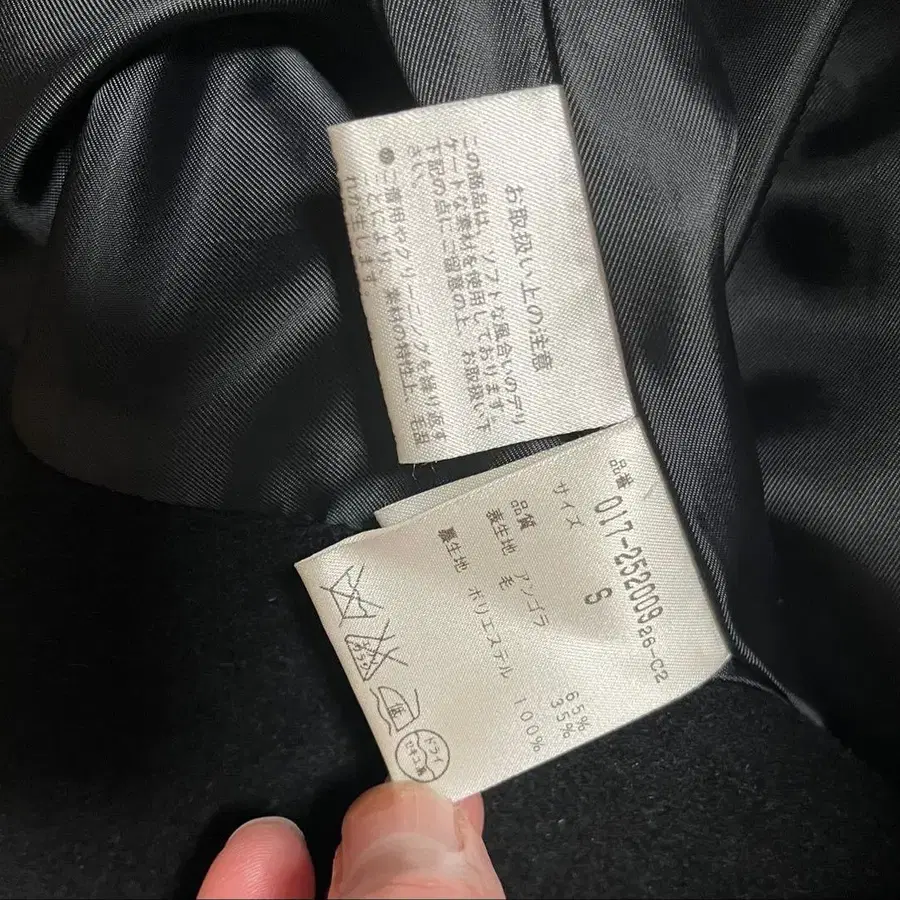 お取扱い上の注意
この商品は、ソフトな風合いのデリ
ケートな素材を使用しております。
下記の点にご留意の上、お取扱い下
さい。
●ご着用やクリーニングを繰り返す
ことにより、素材の特性上、毛羽
れが生じます。
品番 017-252009 26-C2
サイズ S
品質
表生地 アンゴラ 65%
毛 35%
裏生地 ポリエステル 100%
エンソサラシ
低
ドライ
セキユ系